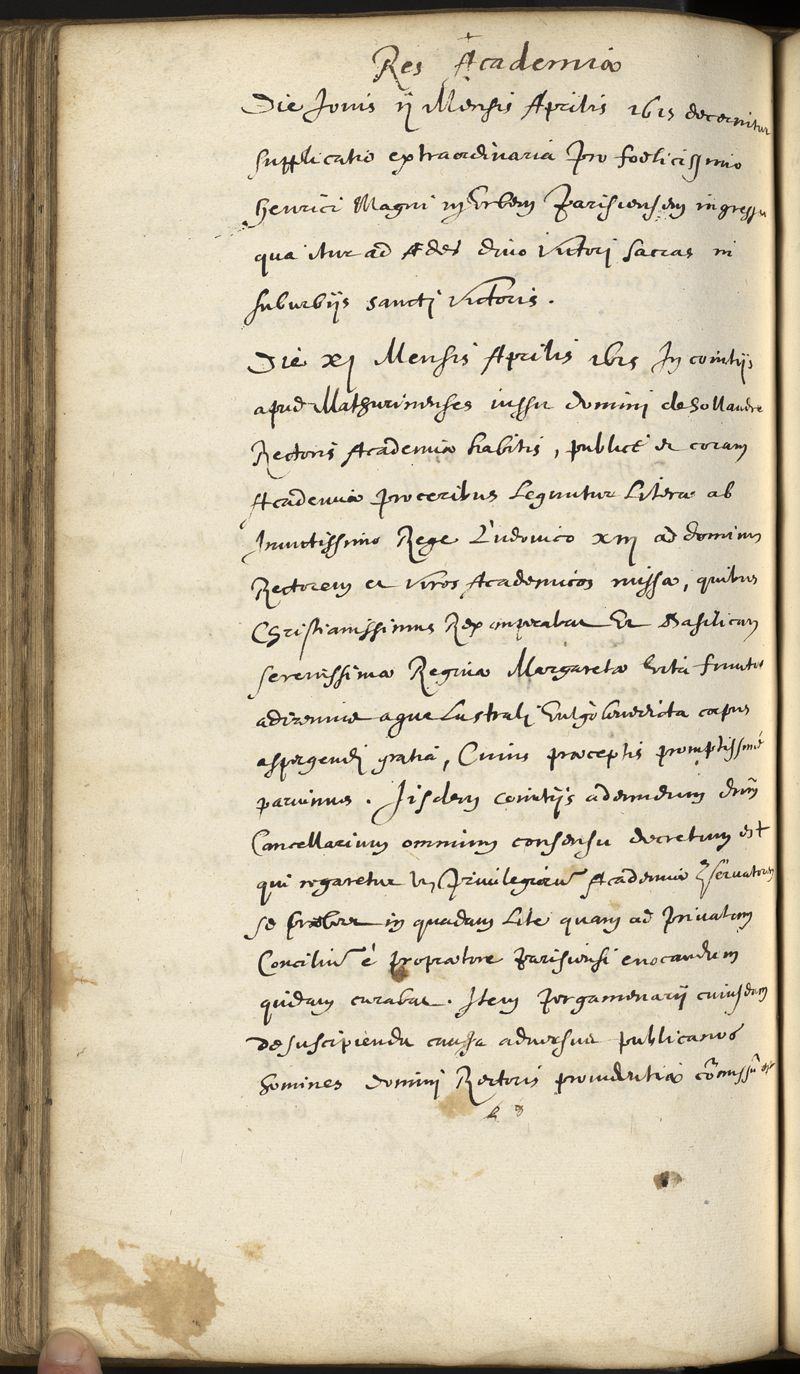 Res Academiæ
Die Jovis ij Mensis Aprilis 1615 decernitur
supplicatio extraordinaria pro foelicissimo
Henrici Magni in Urbem Parisiensem ingressu
qua itur ad Ædes divo Victorj Sacras in
suburbijs sanctj Victoris.
Die xj Mensis Aprilis 1615 In comitijs
apud Mathurinenses iussu dominj de Hollandre
Rectoris Academiæ habitis, publicè et coram
Academiæ proceribus Leguntur Literæ ab
Invictissimo Rege Ludovico xiij ad dominum
Rectorem et viros Academicos missæ, quibus
Christianissimus Rex imperabat Ut Basilicam
serenissimæ Reginæ Margaretæ vita functæ
adiremus aquæ Lustralj vulgò benedicta corpus
aspergendj gratiâ, Cuius præceptis promptissimè
paruimus. Jisdem comitijs adeundum dnm̃
Cancellarium omnium consensu decretum est
qui rogaretur ut Privilegiorũ Academiæ cõservatorem
se præberet in quadam Lite quam ad Privatum
Conciliũ è proprætore Parisiensi evocandum
quidam curabat. Item Pergamenarij cuiusdam
de suscipienda causa adversus publicanos
homines dominj Rectoris providentiæ cõmissũ est